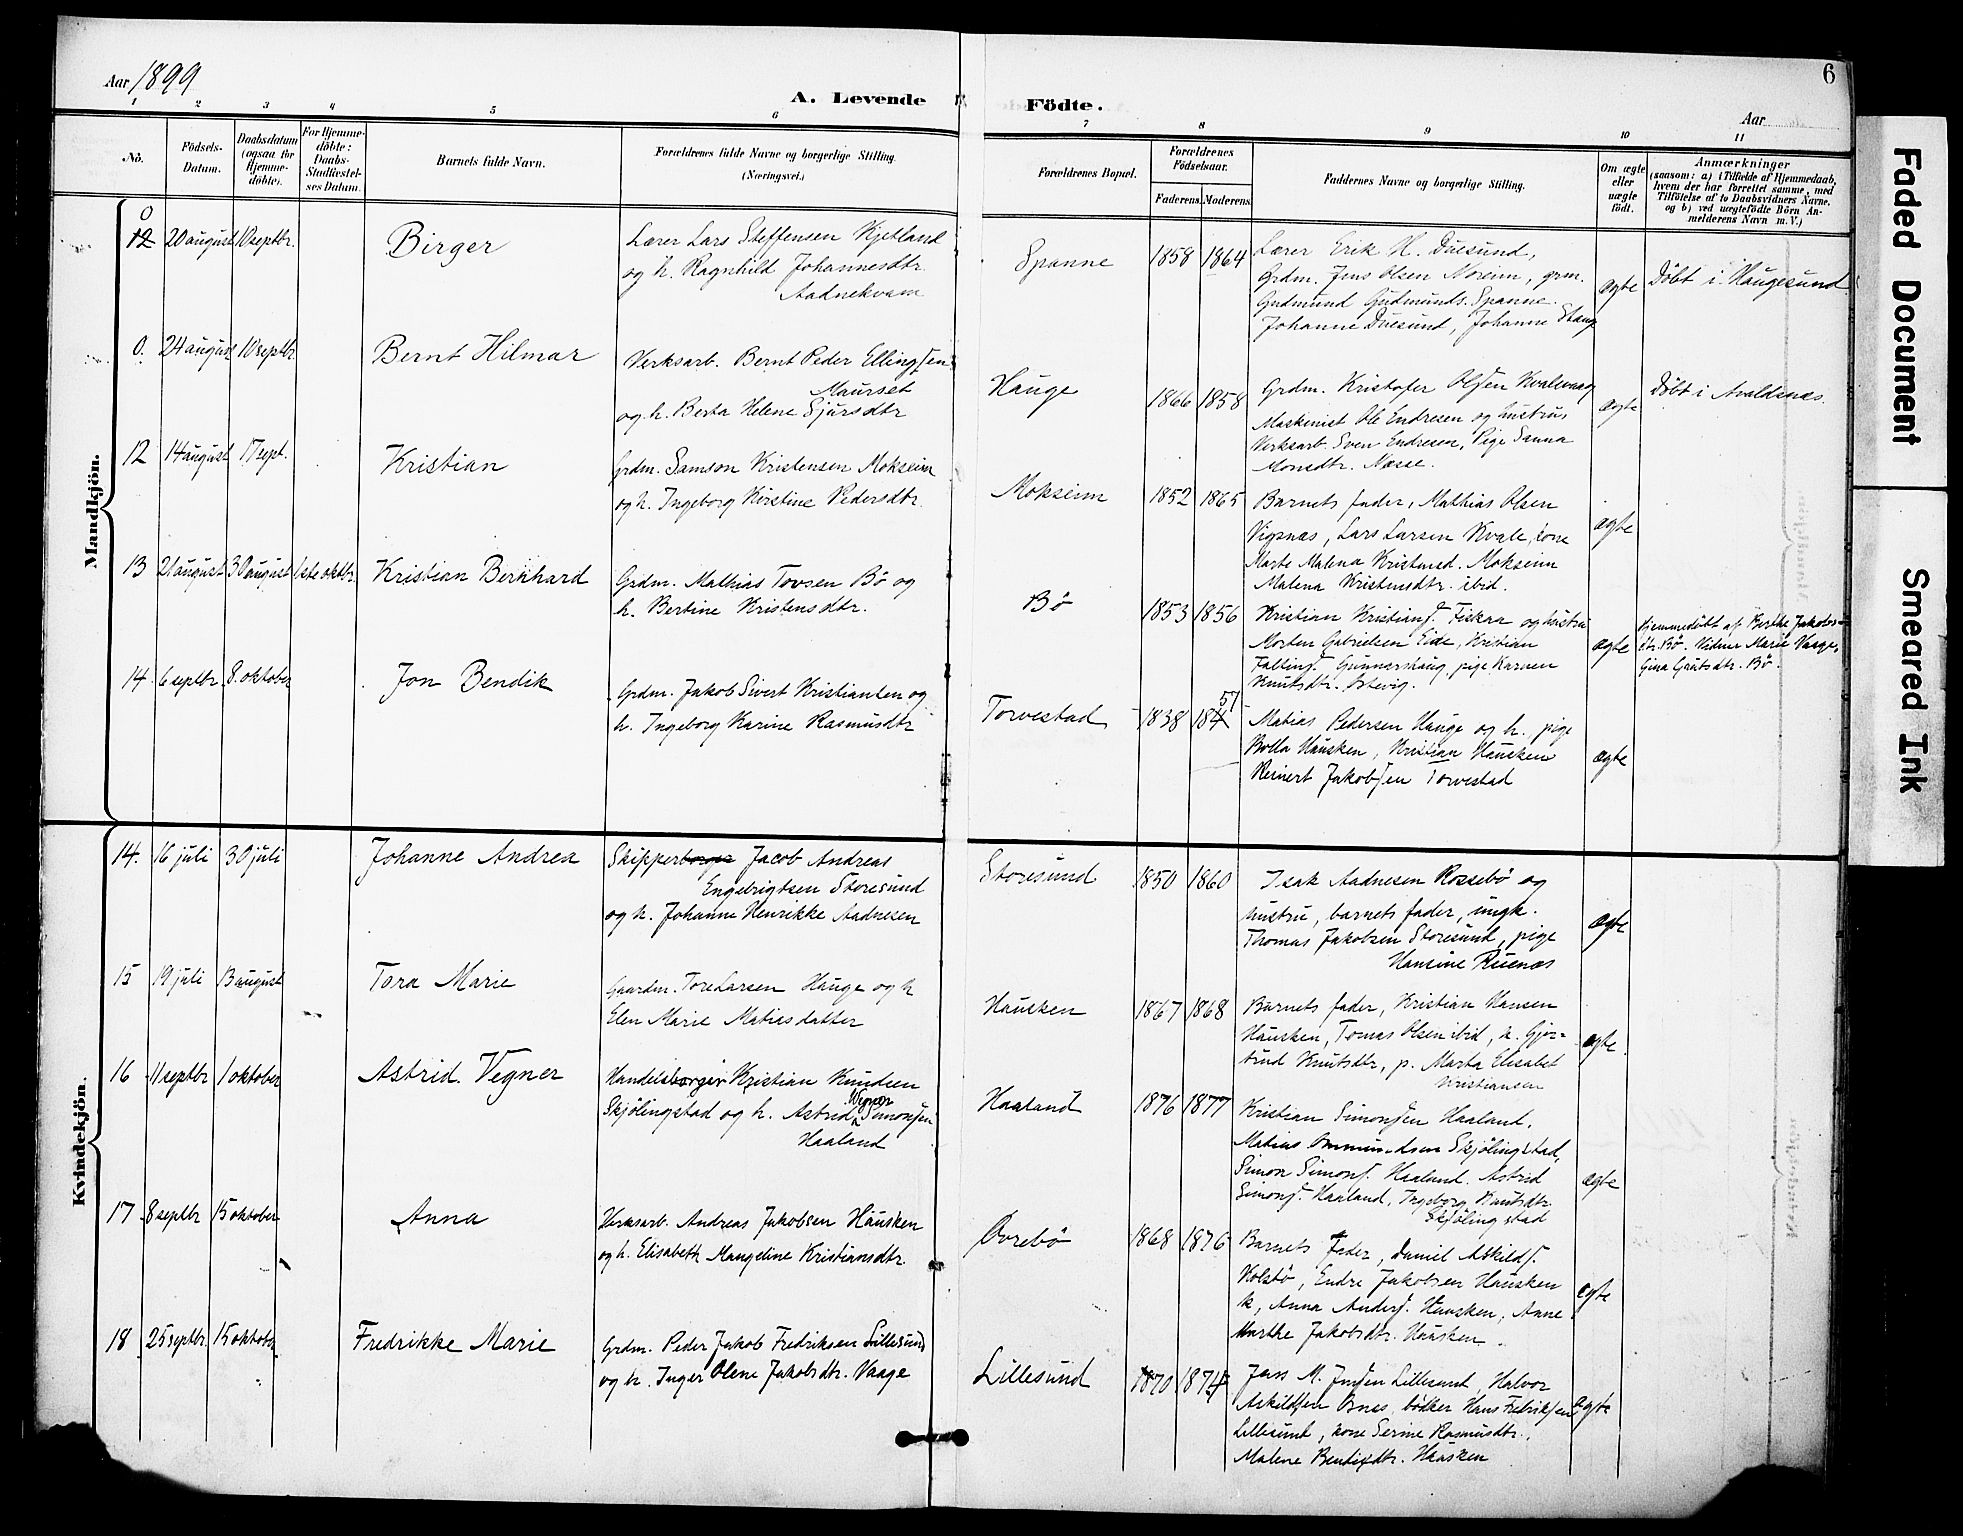 6
Aar 1899
A. Levende Födte.
Aar
1 2 3 4 5 6 7 8 9 10 11
No.
Födsels-Datum.
Daabsdatum (ogsaa for Hjemme-döbte).
For Hjemme-döbte: Daabs-Stadfæstel-ses Datum.
Barnets fulde Navn.
Forældrenes fulde Navne og borgerlige Stilling.
(Næringsvei.)
Forældrenes Bopæl.
Forældrenes Födselsaar.
Faderens. Moderens.
Faddernes Navne og borgerlige Stilling.
Om ægte eller uægte födt.
Anmærkninger
(saasom: a) i Tilfælde af Hjemmedaab, hvem der har forrettet samme, med Tilföielse af to Daabsvidners Navne, og b) ved uægtefödte Börn An-melderens Navn m. V.)
Mandkjön.
0
12 20 august 10 septbr. Birger
Lærer Lars Steffensen Kjetland
og h. Ragnhild Johannesdtr.
Aadnekvam
Spanne 1858 1864
Lærer Erik H. Duesund,
Grdm. Jens Olsen Noreim, grm.
Gudmund Gudmunds. Spanne.
Johanne Duesund, Johanne Stang
ægte
Döbt i Haugesund
0. 24 august 10 septbr Bernt Hilmar
Verksarb. Bernt Peder Ellingsen
Maurset
og h. Berta Helene Sjursdtr
Hauge 1866 1858
Grdm. Kristofer Olsen Kvalevaag
Maskinist Ole Endresen og hustru
Verksarb. Sven Endresen, Pige Sanna
Monsdtr. Næsse.
ægte
Döbt i Avaldsnæs.
12 14 august 17 sept. Kristian
Grdm. Samson Kristensen Mokseim
og h. Ingeborg Kirstine Pedersdtr.
Mokseim 1852 1865
Barnets fader, Mathias Olsen
Vigsnæs, Lars Larsen Kvale, kone
Marte Malena Kristensd. Mokseim
Malena Kristensdtr. ibid.
ægte
13 21 august 30 august 1ste oktbr. Kristian Bernhard
Grdm. Mathias Tovsen Bö og
h. Bertine Kristensdtr.
Bö 1853 1856
Kristian Kristians. Fiskaa og hustru
Morten Gabrielsen Eide, Kristian
Gunnarshaug, pige Karen
Knutsdtr. Østevig.
ægte
Hjemmedöbt af Berthe Jakobs-
dtr. Bö. Vidner Marie Vaage,
Gina Gautsdtr. Bö.
14. 6 septbr. 8. oktober Jon Bendik
Grdm. Jakob Sivert Kristiansen og
h. Ingeborg Karine Rasmusdtr
Torvestad 1838 184 51
Matias Pedersen Hauge og h. pige
Bolla Hausken, Kristian Hausken
Reinert Jakobsen Torvestad
ægte
Kvindekjön.
14. 16 juli 30 juli Johanne Andrea
Skipperborger Jacob Andreas
Engebrigtsen Storesund
og h. Johanne Henrikke Aadnesen
Storesund 1850 1860
Isak Aadnesen Rossebö og
hustru, barnets fader, ungk.
Thomas Jakobsen Storesund, pige
Hansine Ruenæs
ægte
15 19 juli 13 august Tora Marie
Gaardm. Tore Larsen Hauge og h
Elen Marie Matiesdatter
Hausken 1867 1868
Barnets fader, Kristian Hansen
Hausken, Tomas Olsen ibid, h. Gjor-
trud Knutsdtr, p. Marta Elisabet
Kristiansen
ægte.
16 11 septbr 1 oktober Astrid Vegner
Handelsborger Kristian Knudsen
Skjölingstad og h. Astrid Wegner Simonsen
Haaland
Haaland 1876 1877
Kristian Simonsen Haaland.
Matias Ommundsen Skjölingstad,
Simon Simons. Haaland. Astrid
Simons. Haaland, Ingeborg Knutsdtr
Skjölingstad
ægte
17 8 septbr 15 oktober Anna
Verksarb. Andreas Jakobsen Hausken
og h. Elisabeth Mangeline Kristiansdtr.
Ovrebö 1868 1876
Barnets Fader, Daniel Askilds.
Kolstö, Endre Jakobsen Hausken
k, Anna Anders. Hausken, Anne
Marthe Jakobsdtr. Hausken.
ægte
18 25 septbr. 15 oktober Fredrikke Marie
Grdm. Peder Jakob Fredriksen Lillesund
og h. Inger Olene Jakobsdtr. Vaage
Lillesund 1870 1874
Jens M. Jensen Lillesund, Halvor
Askildsen Osnes, bödker Hans Fredriksen
Lillesund, kone Serine Rasmusdtr.,
Malene Bendixdtr. Hausken
ægte
Faded Document
Smeared Ink